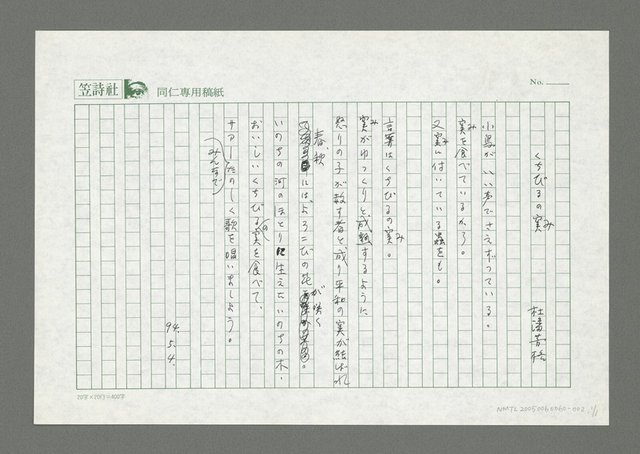 笠詩社
同仁専用稿紙
No.
くちびるの実み
杜潘芳格
小鳥がいい声でさえずっている。
実みを食べているから。
又実に付いている虫をも。
言葉はくちびるの実み。
実みがゆっくりと成熟するように
怒りの子が教す者と成り平和の実が結ばれ
春、秋
には、よろこびの花が咲く。
いのちの河のほとりに生えたいのちの木、
おいしいくちびるの実を食べて、
サアーたのしく歌を唱いましょう。
みんなで
94.
5.4.
20字×20行=400字
NMTL20050060060-002 1/1